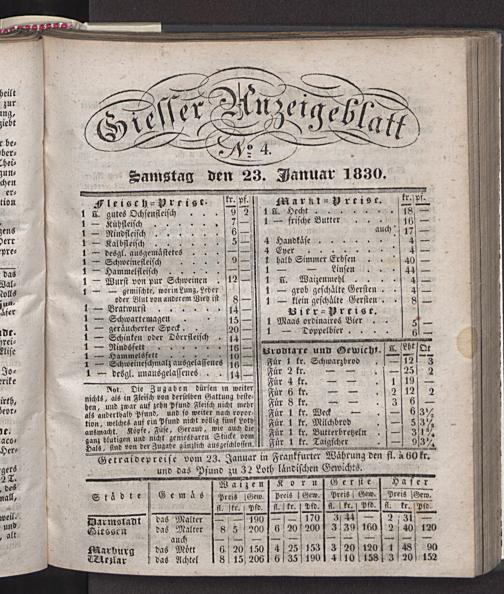 Giesser Anzeigeblatt
No. 4.
Samstag den 23. Januar 1830.
Fleisch=Preise. kr. pf.
1 ℔. gutes Ochsenfleisch 9 2
1 — Kuhfleisch 7 —
1 — Rindfleisch 6 —
1 — Kalbfleisch 5 —
1 — desgl. ausgemästetes — —
1 — Schweinefleisch 9 —
1 — Hammelfleisch
1 — Wurst von pur Schweinen 12 —
1 — — gemischte, worin Lung, Leber
oder Blut von anderem Vieh ist 8 —
1 — Bratwurst 14 —
1 — Schwartemagen 15 —
1 — geräucherter Speck 20 —
1 — Schinken oder Dörrfleisch 14 —
1 — Rindsfett 16 —
1 — Hammelsfett 10 —
1 — Schweineschmalz ausgelassenes 16 —
1 — desgl. unausgelassenes 14 —
Not. Die Zugaben dürfen in weiter
nichts, als in Fleisch von derselben Gattung beste-
hen, und zwar auf zehn Pfund Fleisch nicht mehr
als anderthalb Pfund, und so weiter nach ropor-
tion, welches auf ein Pfund nicht völlig fünf Loth
ausmacht. Köpfe, Füße, Geraun, wie auch die
ganz blutigen und nicht geniesbaren Stücke vom
Hals, sind von der Zugabe gänzlich ausgeschlossen.
Markt=Preise. kr. pf.
1 ℔. Hecht 18 —
1 — frische Butter 16 —
auch 17 —
4 Handkäse 4 —
4 Eyer 4 —
1 halb Simmer Erbsen 40 —
1 — — Linsen 44 —
1 ℔. Waizenmehl 4 —
1 — grob geschälte Gersten 4 —
1 — klein geschälte Gersten 8 —
Bier=Preise.
1 Maas ordinaires Bier 5 —
1 — Doppelbier 6 —
Brodtaxe und Gewicht. ℔. Lht Qt
Für 1 kr. Schwarzbrod — 12 3
Für 2 kr. — — — 25 2
Für 4 kr. — — 1 19 —
Für 6 kr. — — 2 12 2
Für 8 kr. — — 3 6 —
Für 1 kr. Weck — 6 3½
Für 1 kr. Milchbrod — 5 3½
Für 1 kr. Butterbretzeln — 3 1¾
Für 1 kr. Taigscher — 9 3¾
Getraidepreise vom 23. Januar in Frankfurter Währung den fl. à 60 kr.
und das Pfund zu 32 Loth ländischen Gewichts.
Städte Gemäs Waizen Korn Gerste Hafer
Preis Gew. Preis Gew. Preis Gew. Preis Gew.
fl. kr. Pfd. fl. kr. Pfd. fl. kr. Pfd. fl. kr. Pfd.
Darmstadt das Malter — — 190 — — 170 3 44 — 2 31 —
Giessen das Malter 8 5 200 6 20 200 3 39 160 2 40 120
auch — — — — — — — — — — — —
Marburg das Mött 6 20 150 4 25 153 3 20 120 1 48 90
Wezlar das Achtel 8 15 206 6 35 190 4 10 158 3 20 152